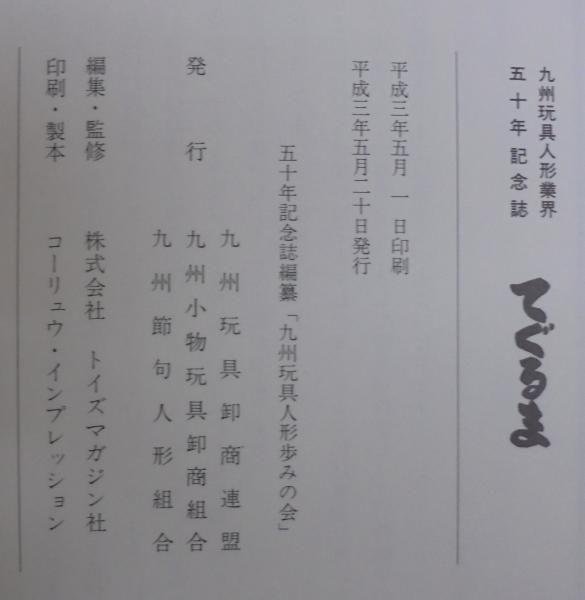 九州玩具人形業界
五十年記念誌
てぐるま
平成三年五月 一 日印刷
平成三年五月二十日発行
五十年記念誌編纂「九州玩具人形歩みの会」
九州玩具卸商連盟
発 行 九州小物玩具卸商組合
九州節句人形組合
編集・監修 株式会社 トイズマガジン社
印刷・製本 コーリュウ・インプレッション